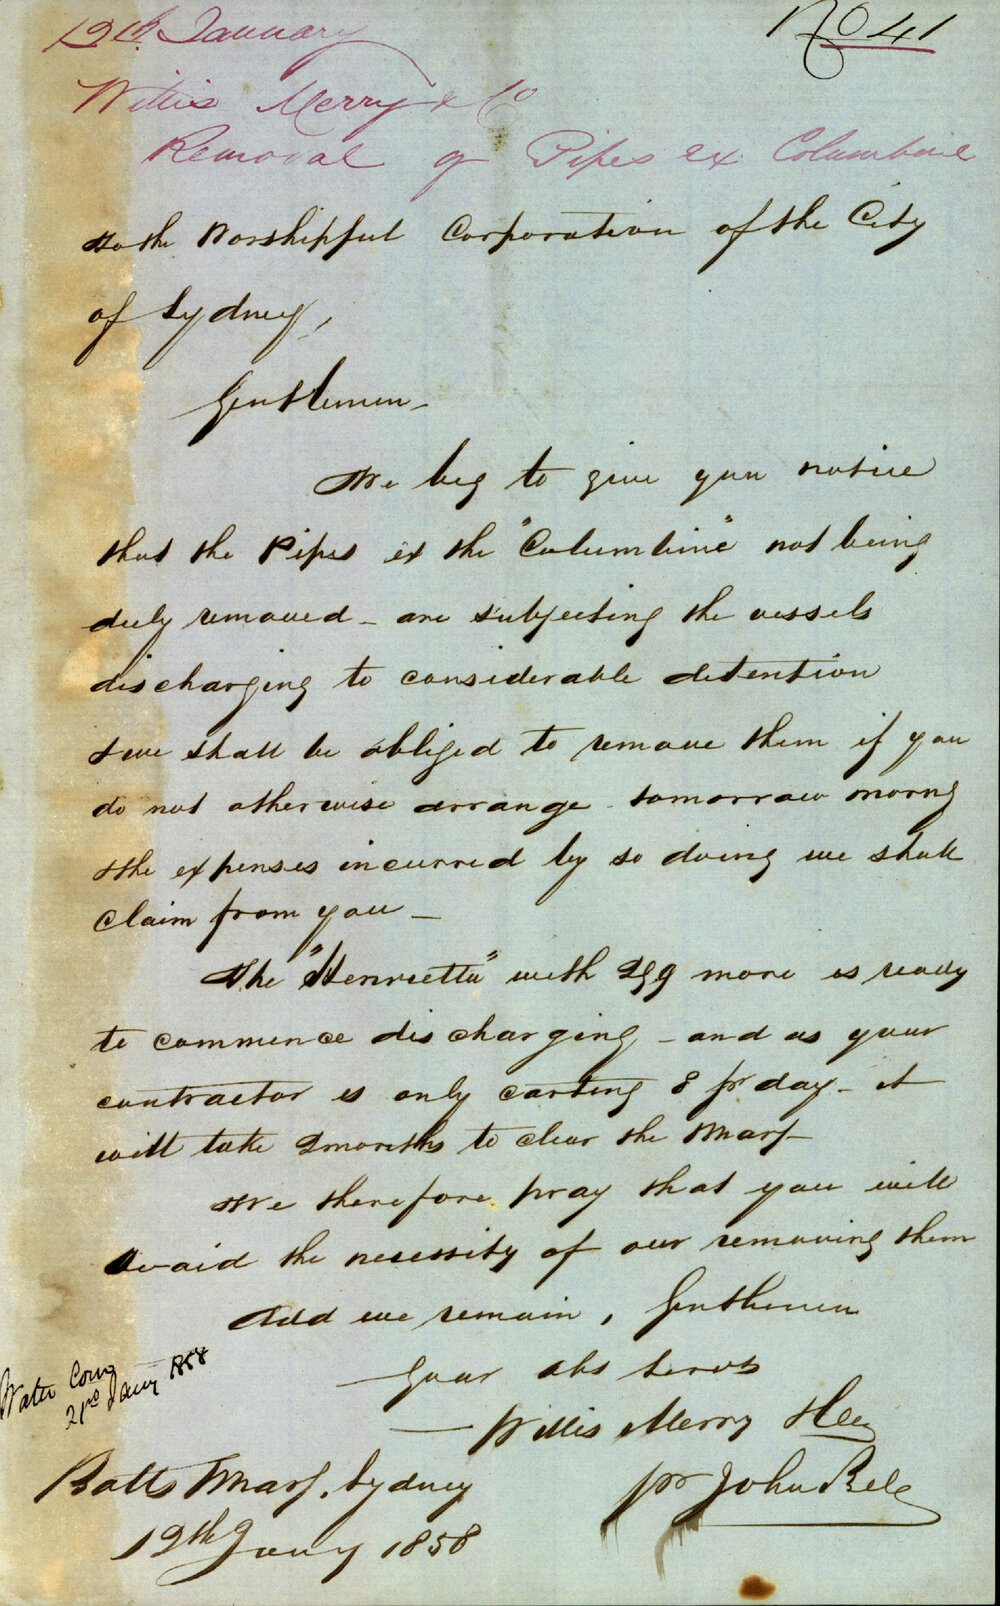 No 41
19th January
Willis Merry & Co
Removal of Pipes ex Columbine
To the Worshipful Corporation of the City
of Sydney,
Gentlemen -
We beg to give you notice
that the Pipes ex the "Columbine" not being
duly removed - are subjecting the vessels
discharging to considerable detention
& we shall be obliged to remove them if you
do not otherwise arrange tomorrow morng
& the expenses incurred by so doing we shall
claim from you -
The "Henrietta" with 299 more is ready
to commence discharging - and as your
contractor is only carting 8 pr day - it
will take 2 months to clear the Wharf -
We therefore pray that you will
avoid the necessity of our removing them
And we remain, Gentlemen
Your obt Servts
Willis Merry & Co
pr John Bell
Water Comg
21st Jany 1858
Botts Wharf, Sydney
19th Jany 1858